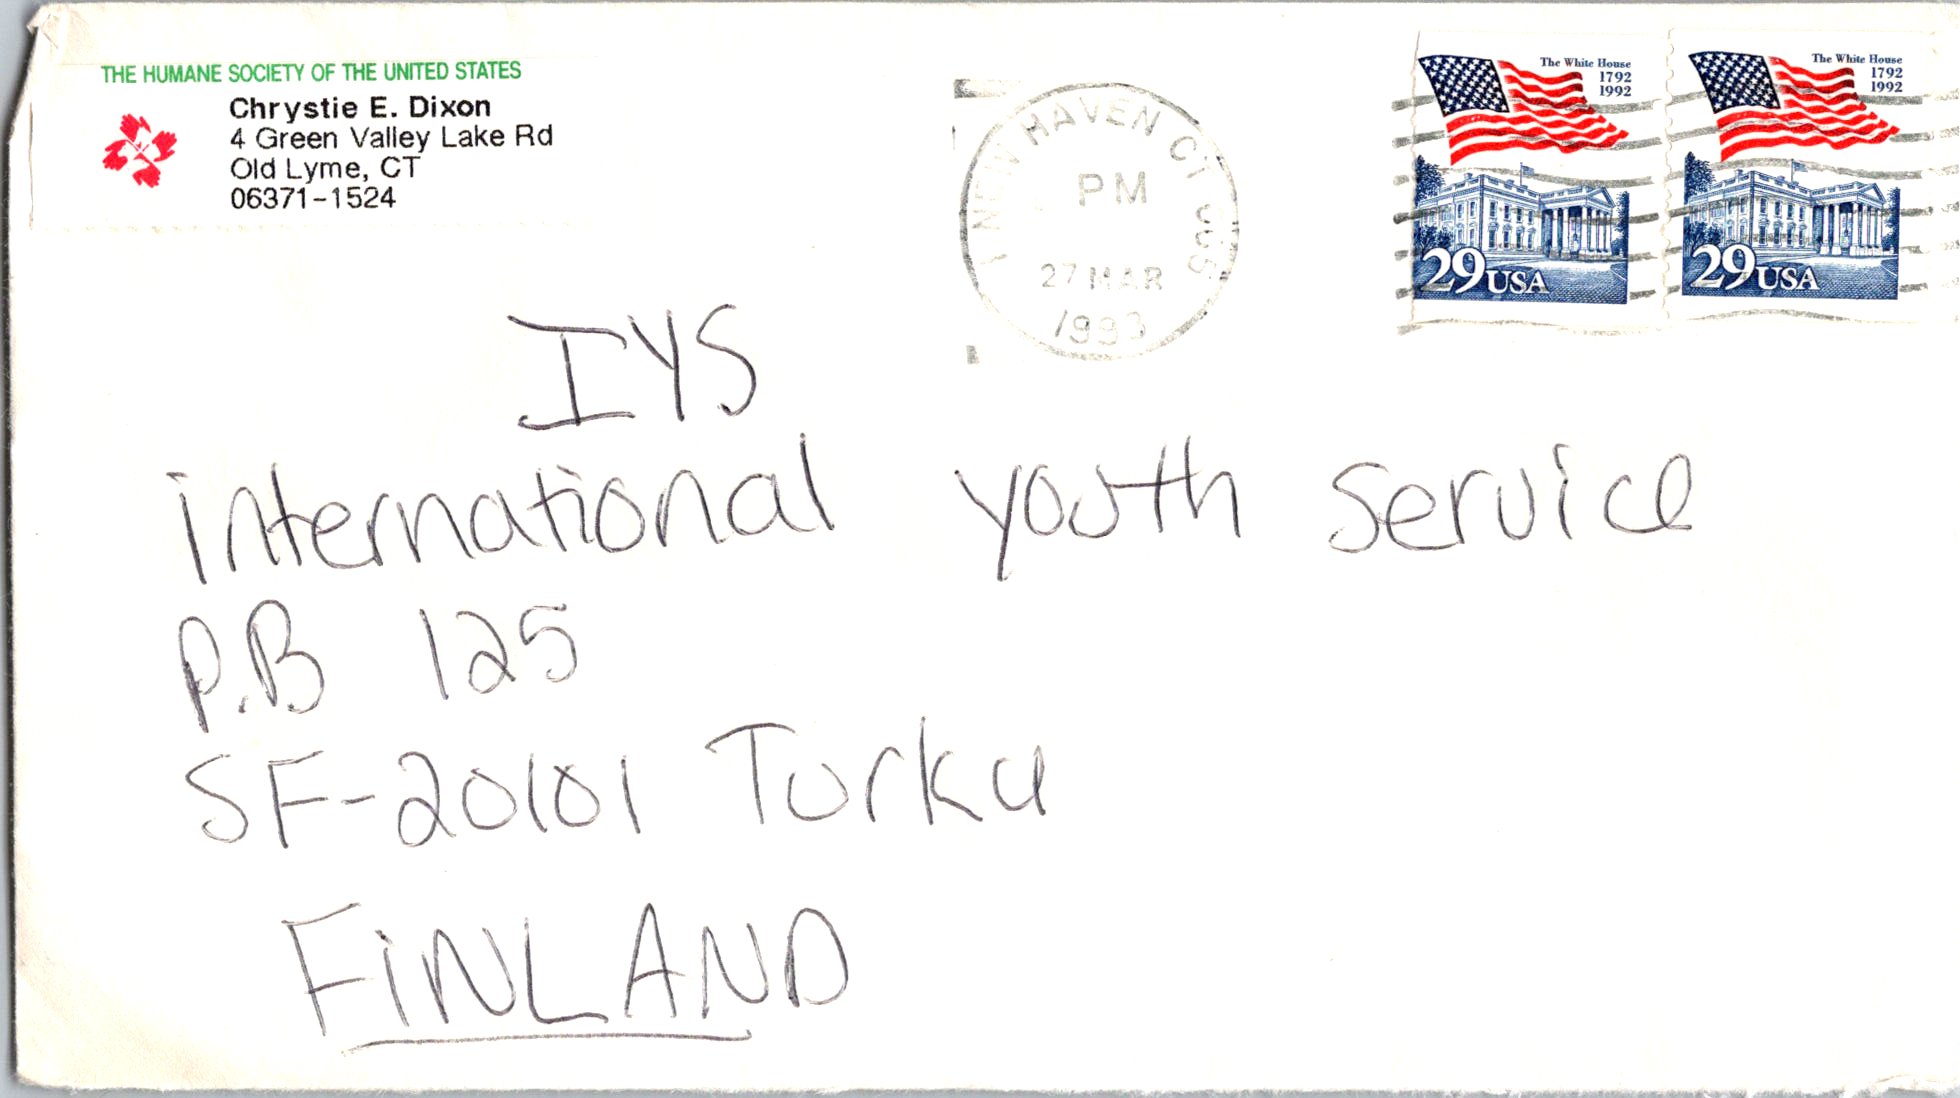 THE HUMANE SOCIETY OF THE UNITED STATES
Chrystie E. Dixon
4 Green Valley Lake Rd
Old Lyme, CT
06371-1524
HAVEN CT
PM
27 MAR
1993
The White House
1792
1992
29 USA
The White House
1792
1992
29 USA
IYS
international youth service
P.B 125
SF-20101 Turku
FiNLAND